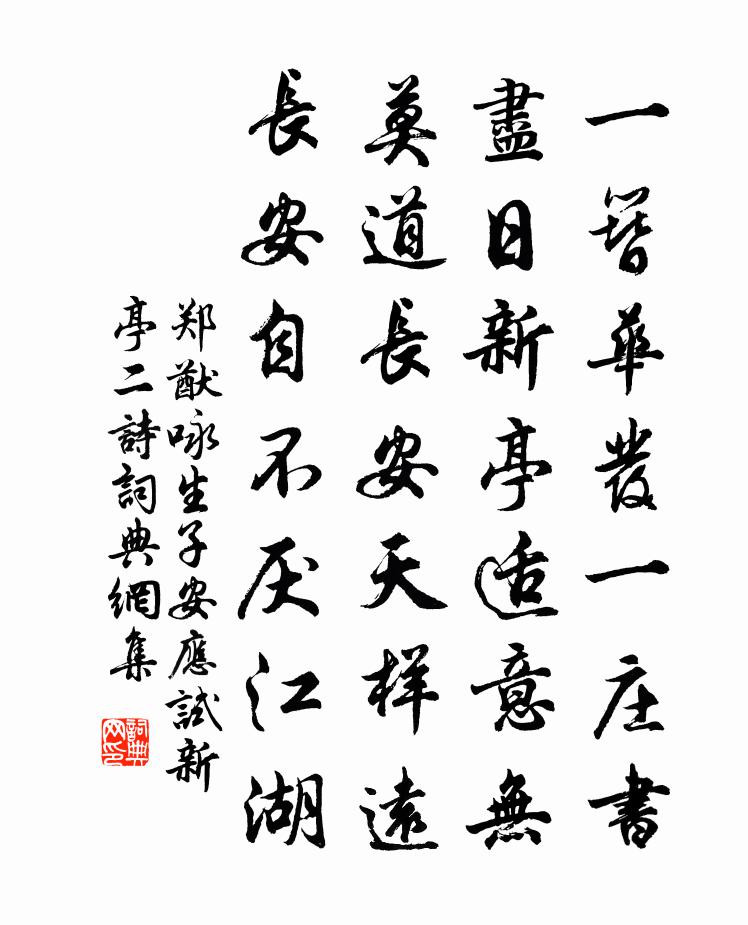 一簪華發一庄書
盡日新亭适意無
莫道長安天樣遠
長安自不厌江湖
郑猷咏生子安應試新
亭二詩詞典網集
詞典网印